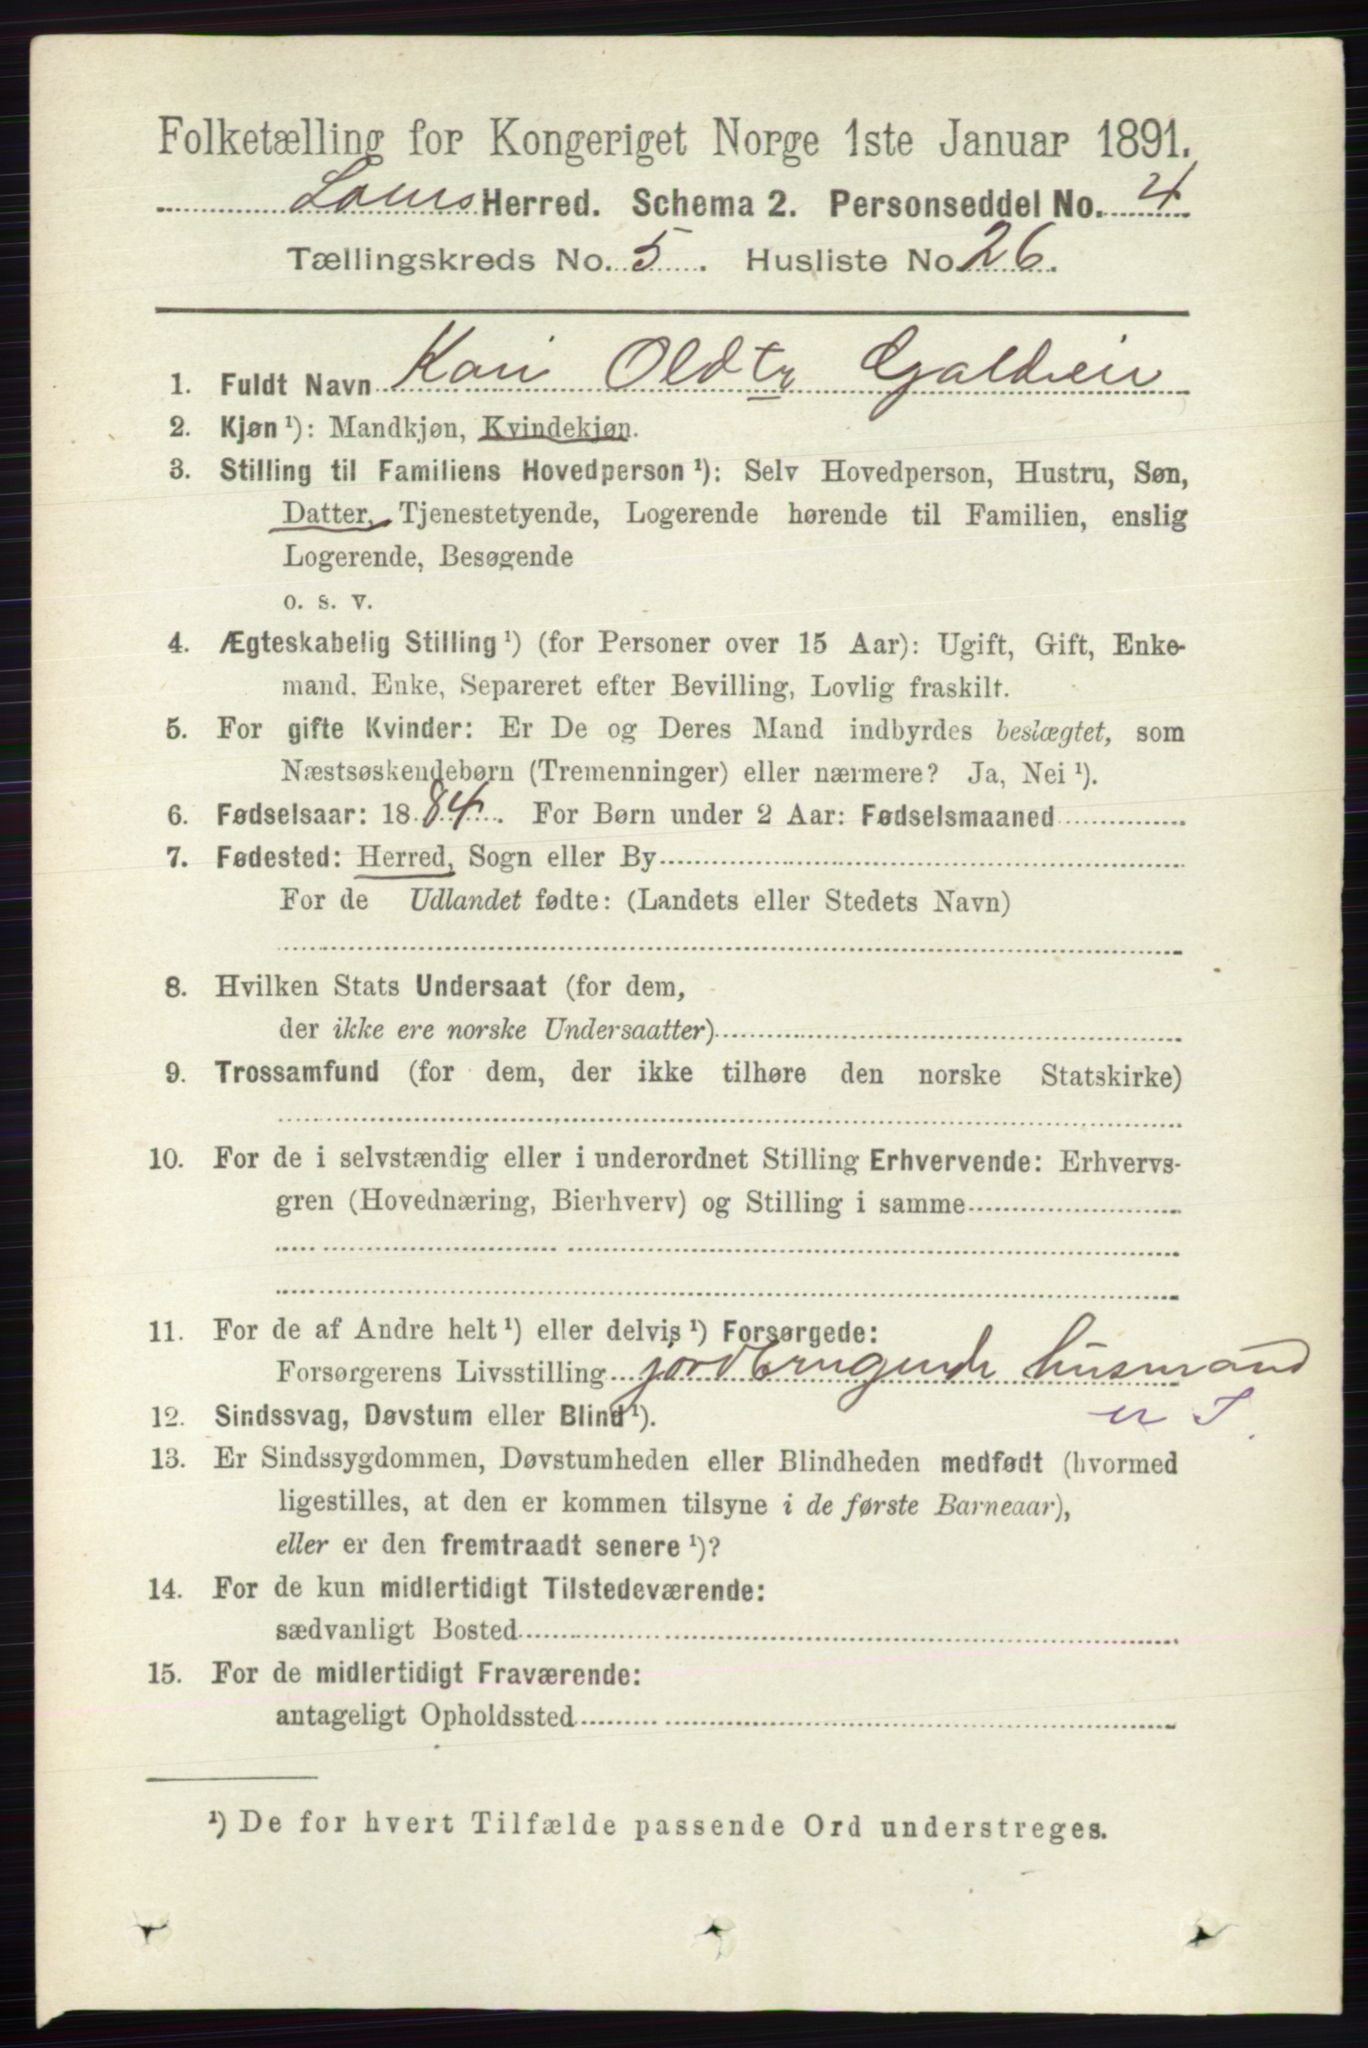 Folketælling for Kongeriget Norge 1ste Januar 1891.
Loms Herred. Schema 2. Personseddel No. 4
Tællingskreds No. 5. Husliste No 26.
1. Fuldt Navn Kari Oldtr Galdeie
2. Kjøn ¹): Mandkjøn, Kvindekjøn.
3. Stilling til Familiens Hovedperson ¹): Selv Hovedperson, Hustru, Søn,
Datter, Tjenestetyende, Logerende hørende til Familien, enslig
Logerende, Besøgende
o. s. v.
4. Ægteskabelig Stilling ¹) (for Personer over 15 Aar): Ugift, Gift, Enke-
mand, Enke, Separeret efter Bevilling, Lovlig fraskilt.
5. For gifte Kvinder: Er De og Deres Mand indbyrdes beslægtet, som
Næstsøskendebørn (Tremenninger) eller nærmere? Ja, Nei ¹).
6. Fødselsaar: 1884. For Børn under 2 Aar: Fødselsmaaned
7. Fødested: Herred, Sogn eller By
For de Udlandet fødte: (Landets eller Stedets Navn)
8. Hvilken Stats Undersaat (for dem,
der ikke ere norske Undersaatter)
9. Trossamfund (for dem, der ikke tilhøre den norske Statskirke)
10. For de i selvstændig eller i underordnet Stilling Erhvervende: Erhvervs-
gren (Hovednæring, Bierhverv) og Stilling i samme
11. For de af Andre helt ¹) eller delvis ¹) Forsørgede:
Forsørgerens Livsstilling jordbrugende husmand
12. Sindssvag, Døvstum eller Blind ¹).
13. Er Sindssygdommen, Døvstumheden eller Blindheden medfødt (hvormed
ligestilles, at den er kommen tilsyne i de første Barneaar),
eller er den fremtraadt senere ¹)?
14. For de kun midlertidigt Tilstedeværende:
sædvanligt Bosted
15. For de midlertidigt Fraværende:
antageligt Opholdssted
¹) De for hvert Tilfælde passende Ord understreges.